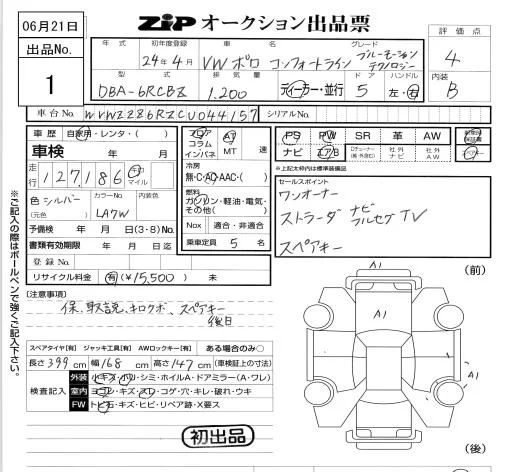 06月21日
出品No.
1
ZIP オークション出品票
評価点
4
内装
B
年式 初年度登録 車名 グレード
24年4月 VW ポロ コンフォートライン ブルーモーション テクノロジー
型式 排気量 ドア ハンドル
DBA-6RCBZ 1.200 ディーラー・並行 5 左・右
車台No. WVWZZZ6RZCU044157 シリアルNo.
車歴 自家用・レンタ・( )
車検 年 月
走行 127,186 キロ マイル
色 シルバー カラーNo. 内装No.
(元色) LA7W
予備検 年 月 日(3・8)No.
書類有効期限 年 月 日迄
登録No.
リサイクル料金 有(¥15,500) 未
フロア コラム インパネ AT MT 速
冷房
無・C・AC・AAC・( )
燃料
ガソリン・軽油・電気・その他( )
Nox 適合・非適合
乗車定員 5 名
PS PW SR 革 AW
ナビ エアB 社外ナビ 社外AW
スペアキー
※上記太枠内は標準装備品
セールスポイント
ワンオーナー
ストラーダ ナビ フルセグTV
スペアキー
(注意事項)
保、取説、キロクボ、スペアキー
後日
スペアタイヤ[有] ジャッキ工具[有] AWロックキー[有] ある場合のみ○
長さ 399 cm 幅 168 cm 高さ 147 cm (車検証上の寸法)
検査記入 外装 小キズ・ハリ・シミ・ホイルA・ドアミラー(A・ワレ)
室内 ヨゴレ・キズ・スレ・コゲ・穴・キレ・破れ・ウキ
FW トビ石・キズ・ヒビ・リペア跡・X要ス
初出品
※ご記入の際はボールペンで強くご記入下さい。
A1
(前)
A1
A1
(後)